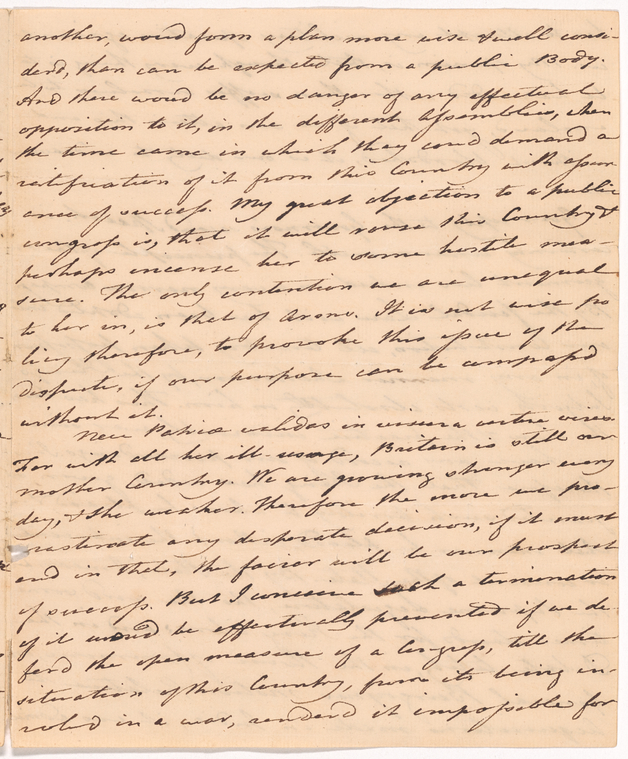 another, would form a plan more wise & well consi-
derd, than can be expected from a public Body.
And there would be no danger of any effectual
opposition to it, in the different Assemblies, when
the time came in which they coud demand a
ratification of it from this Country with assur-
ance of success. My great objection to a public
congress is, that it will rouse this Country &
perhaps incense her to some hostile mea-
sure. The only contention we are unequal
to her in, is that of Arms. It is not wise po
licy therefore, to provoke this issue of the
dispute, if our purpose can be compass'd
without it.
Neve Patriæ validas in viscera vertite vires
For with all her ill-usage, Britain is still our
mother Country. We are growing stronger every
day, & she weaker. Therefore the more we pro-
crastinate any desperate decision, if it must
end in that, the fairer will be our prospect
of success. But I conceive such a termination
of it woud be effectually prevented if we de-
ferd the open measure of a Congress, till the
situation of this Country, from its being in-
volvd in a war, renderd it impossible for